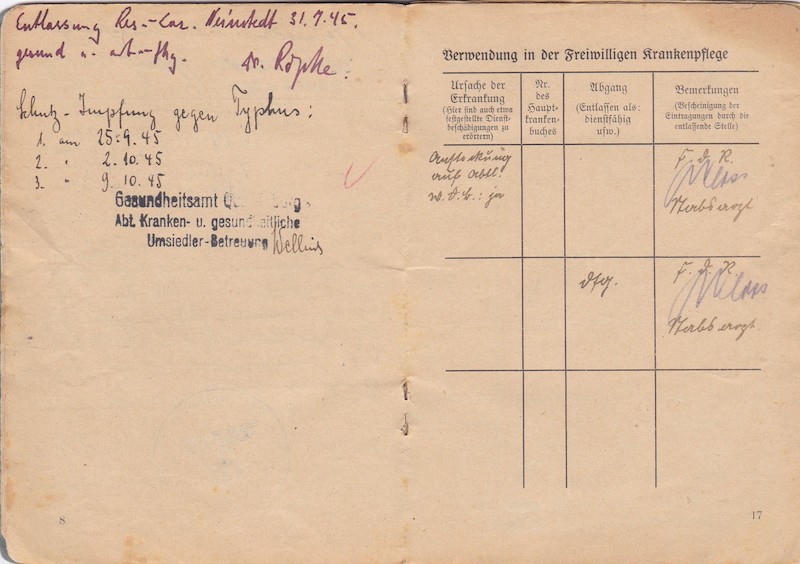 Entlassung Res.-Laz. Neinstedt 31.7.45.
gesund u.
Dr. Röpke.
Schutz-Impfung gegen Typhus:
1. am 25.9.45
2. " 2.10.45
3. " 9.10.45
Gesundheitsamt
Abt. Kranken- u. gesundheitliche
Umsiedler-Betreuung
8
Verwendung in der Freiwilligen Krankenpflege
Ursache der
Erkrankung
(Hier sind auch etwa
festgestellte Dienst-
beschädigungen zu
erörtern)
Nr.
des
Haupt-
kranken-
buches
Abgang
(Entlassen als:
dienstfähig
usw.)
Bemerkungen
(Bescheinigung der
Eintragungen durch die
entlassende Stelle)
Ansteckung
auf Abtl.
w.d.b.: ja
F. d. R.
Stabsarzt
dfg.
F. d. R.
Stabsarzt
17